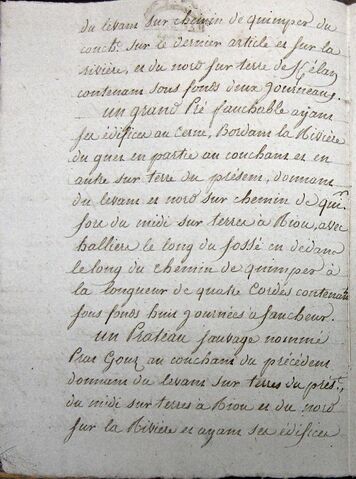 du levant sur chemin de quimper du
couch.t sur le dernier article et sur la
rivière, et du nord sur terre de
contenant sous fonds deux journeaux
un grand Pré fauchable ayant
ses édifices au cerne, Bordant la Rivière
du guer en partie au couchant et en
autre sur terre du présent, donnant
du levant et nord sur chemin de
fors du midi sur terres à Riou, avec
hallière le long du fossé en dedans
le long du chemin de quimper à
la longueur de quatre Cordes contenant
sous fonds huit journées à faucheur.
un Prateau sauvage nommé
Prat Gouz au couchant du précédent
donnant du levant sur terres du prést.,
du midi sur terres à Riou et du nord
sur la Rivière et ayant ses édifices